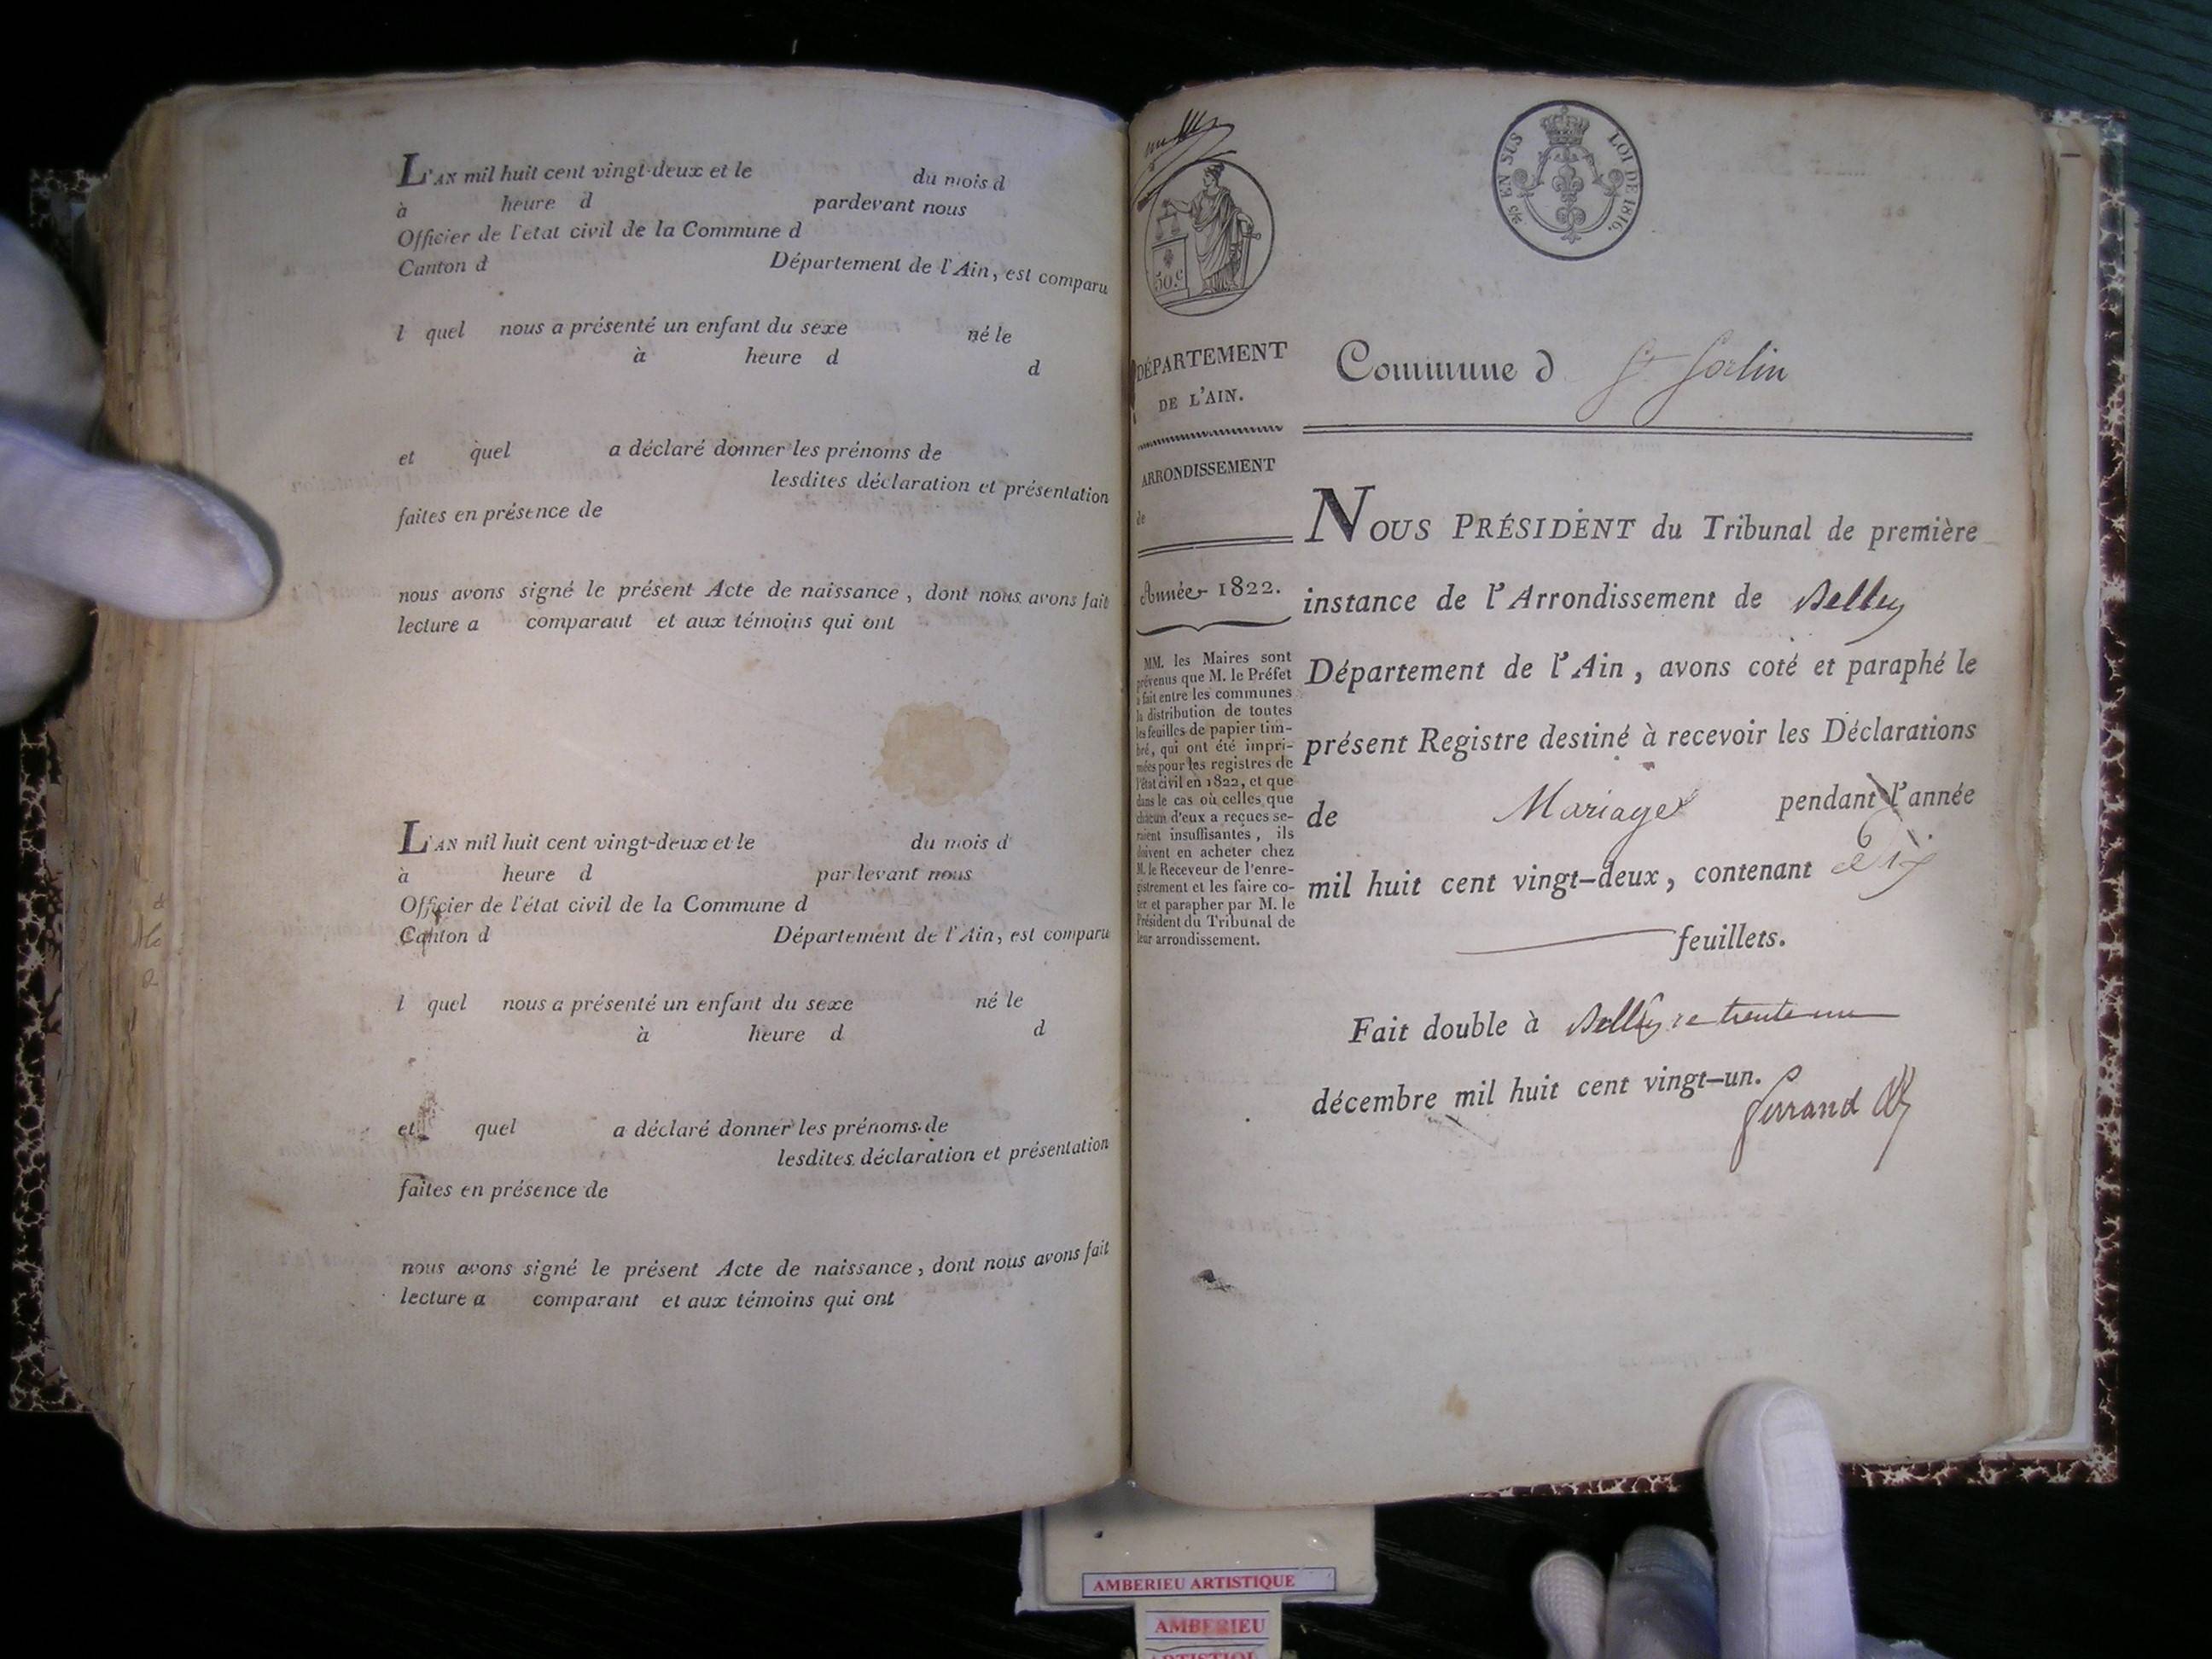 L'AN mil huit cent vingt-deux et le du mois d
à heure d pardevant nous
Officier de l'état civil de la Commune d
Canton d Département de l'Ain, est comparu
l quel nous a présenté un enfant du sexe né le
à heure d d
et quel a déclaré donner les prénoms de
lesdites déclaration et présentation
faites en présence de
nous avons signé le présent Acte de naissance, dont nous avons fait
lecture a comparant et aux témoins qui ont
L'AN mil huit cent vingt-deux et le du mois d
à heure d pardevant nous
Officier de l'état civil de la Commune d
Canton d Département de l'Ain, est comparu
l quel nous a présenté un enfant du sexe né le
à heure d d
et quel a déclaré donner les prénoms de
lesdites déclaration et présentation
faites en présence de
nous avons signé le présent Acte de naissance, dont nous avons fait
lecture a comparant et aux témoins qui ont
50.c
EN SUS LOI DE 1816.
DÉPARTEMENT
DE L'AIN.
ARRONDISSEMENT
de
Année 1822.
MM. les Maires sont
prévenus que M. le Préfet
a fait entre les communes
la distribution de toutes
les feuilles de papier tim-
bré, qui ont été impri-
mées pour les registres de
l'état civil en 1822, et que
dans le cas où celles que
chacun d'eux a reçues se-
raient insuffisantes, ils
doivent en acheter chez
M. le Receveur de l'enre-
gistrement et les faire co-
ter et parapher par M. le
Président du Tribunal de
leur arrondissement.
Commune d St Sorlin
NOUS PRÉSIDENT du Tribunal de première
instance de l'Arrondissement de Belley
Département de l'Ain, avons coté et paraphé le
présent Registre destiné à recevoir les Déclarations
de Mariages pendant l'année
mil huit cent vingt-deux, contenant dix
feuillets.
Fait double à Belley le trente un
décembre mil huit cent vingt-un.
AMBERIEU ARTISTIQUE
AMBERIEU
ARTISTIQUE